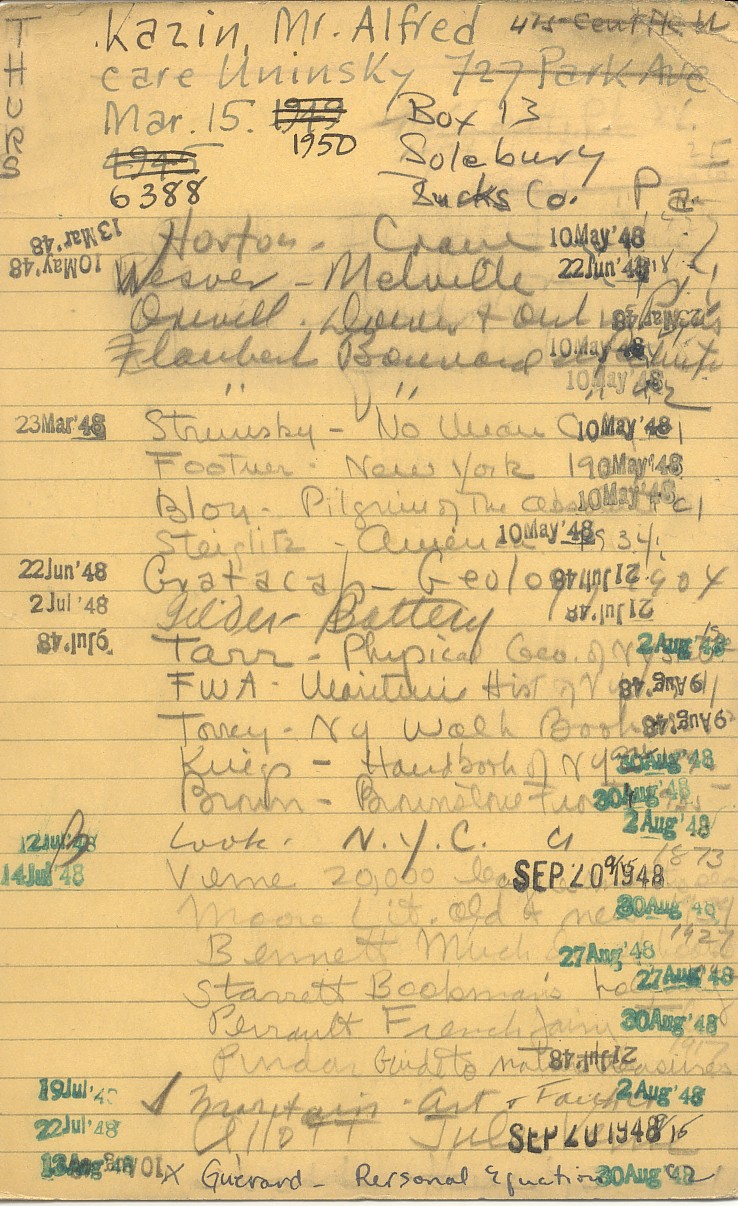 THURS
Kazin, Mr. Alfred 415 Cent Pk W
care Uninsky 727 Park Ave
Mar. 15. 1949 Box 13
1950 Solebury
1945
6388 Bucks Co. Pa.
13 Mar '48 Horton - Crane 10 May '48
10 May '48 Weaver - Melville 22 Jun '48
Orwell. Down & Out in Paris 23 Mar '48
Flaubert Bouvard 10 May '48
" " 10 May '48
23 Mar '48 Strunsky - No Mean C 10 May '48
Footner - New York 10 May '48
Bloy - Pilgrim of the Abso 10 May '48 c1
Steiglitz - America 10 May '48 1934
22 Jun '48 Gratacap - Geology 21 Jul '48 1904
2 Jul '48 Gilder - Battery 21 Jul '48
9 Jul '48 Tarr - Physical Geo. of NYS 2 Aug '48
FWA - Maritime Hist of NY 19 Aug '48
Torrey - NY Walk Book 19 Aug '48
Kriegs - Handbook of NY 30 Aug '48
Brown - Brownstone Fro 30 Aug '48
2 Aug '48
12 Jul '48 Look. N.Y.C. c1
14 Jul '48 Verne 20,000 lea SEP 20 1948 1873
Moore Lit. old & new 30 Aug '48
Bennett Much 27 Aug '48 1927
Starrett Bookman's ho 27 Aug '48
Perrault French Fairy 30 Aug '48
Pindar Guide to 21 Jul '48
19 Jul '48 Maritain - Art & Faith 2 Aug '48
22 Jul '48 Elliott Jul SEP 20 1948
13 Aug '48 X Guérard - Personal Equation 30 Aug '48